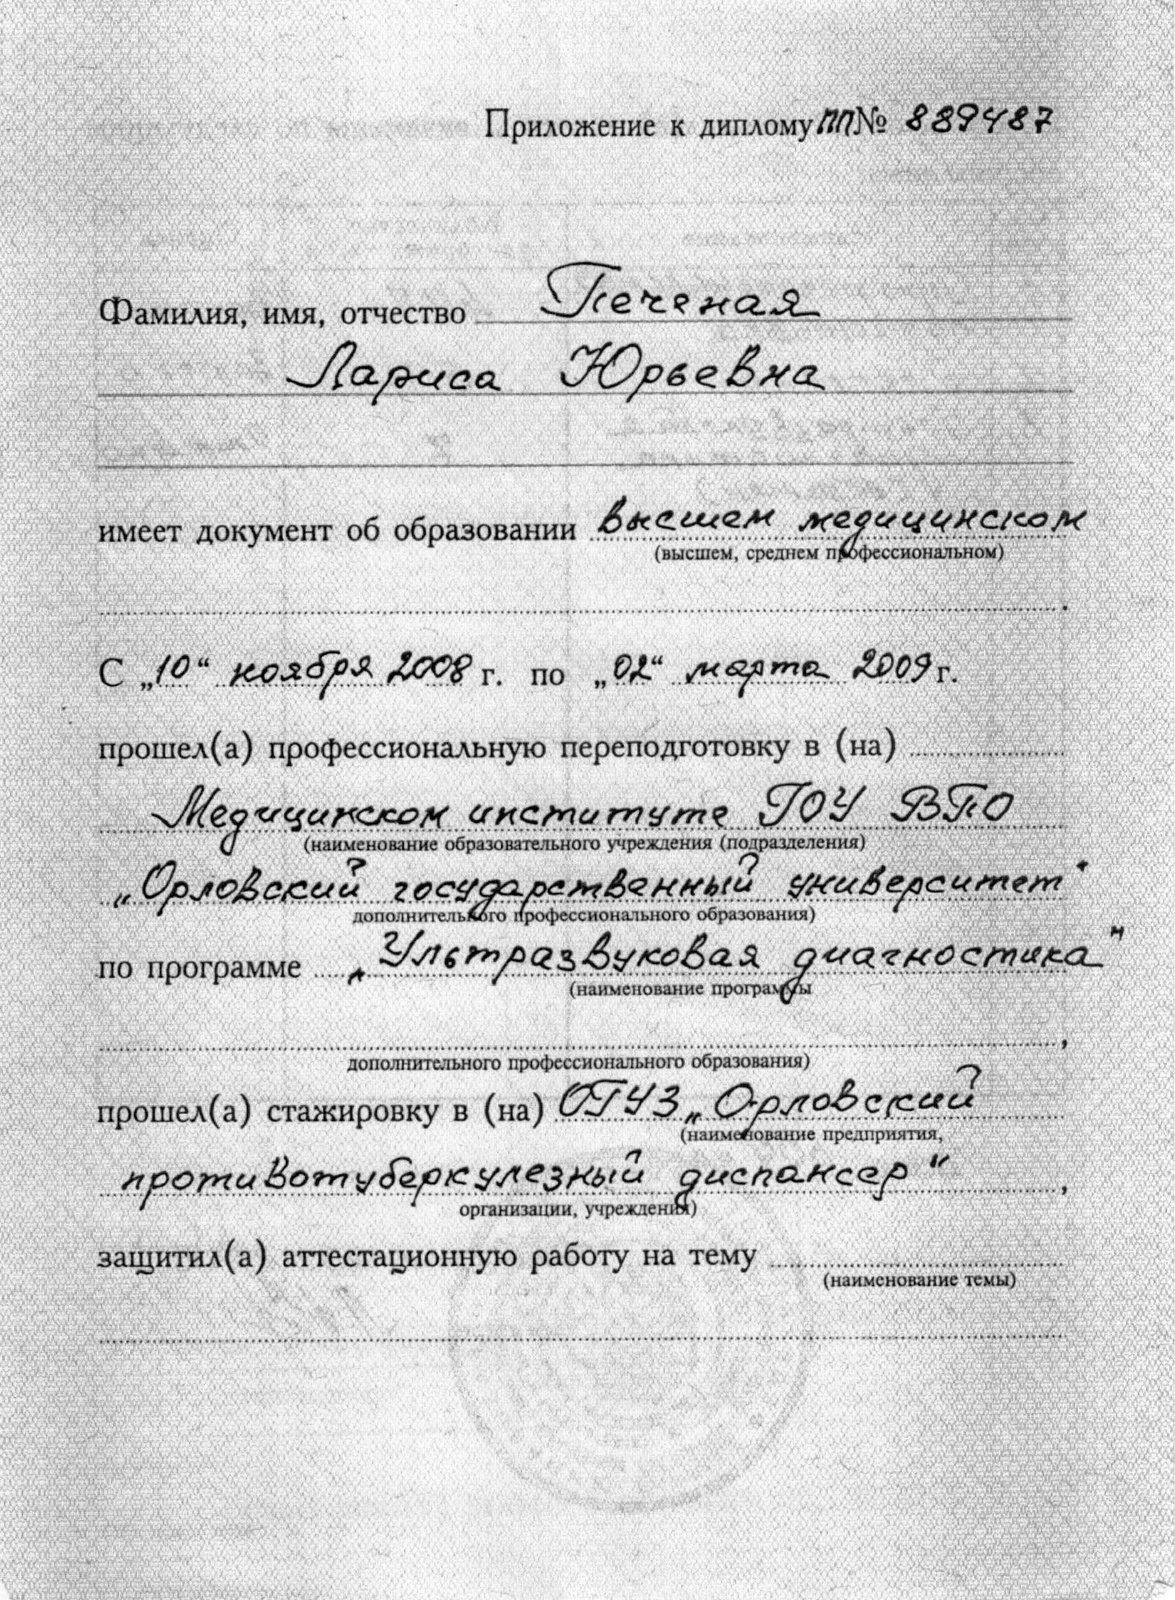 Приложение к диплому ПП№ 889487
Фамилия, имя, отчество Печеная
Лариса Юрьевна
имеет документ об образовании высшем медицинском
(высшем, среднем профессиональном)
С „10“ ноября 2008 г. по „02“ марта 2009 г.
прошел(а) профессиональную переподготовку в (на)
Медицинском институте ГОУ ВПО
(наименование образовательного учреждения (подразделения)
„Орловский государственный университет“
дополнительного профессионального образования)
по программе „Ультразвуковая диагностика“
(наименование программы
,
дополнительного профессионального образования)
прошел(а) стажировку в (на) ОГУЗ „Орловский
(наименование предприятия,
противотуберкулезный диспансер“,
организации, учреждения)
защитил(а) аттестационную работу на тему
(наименование темы)